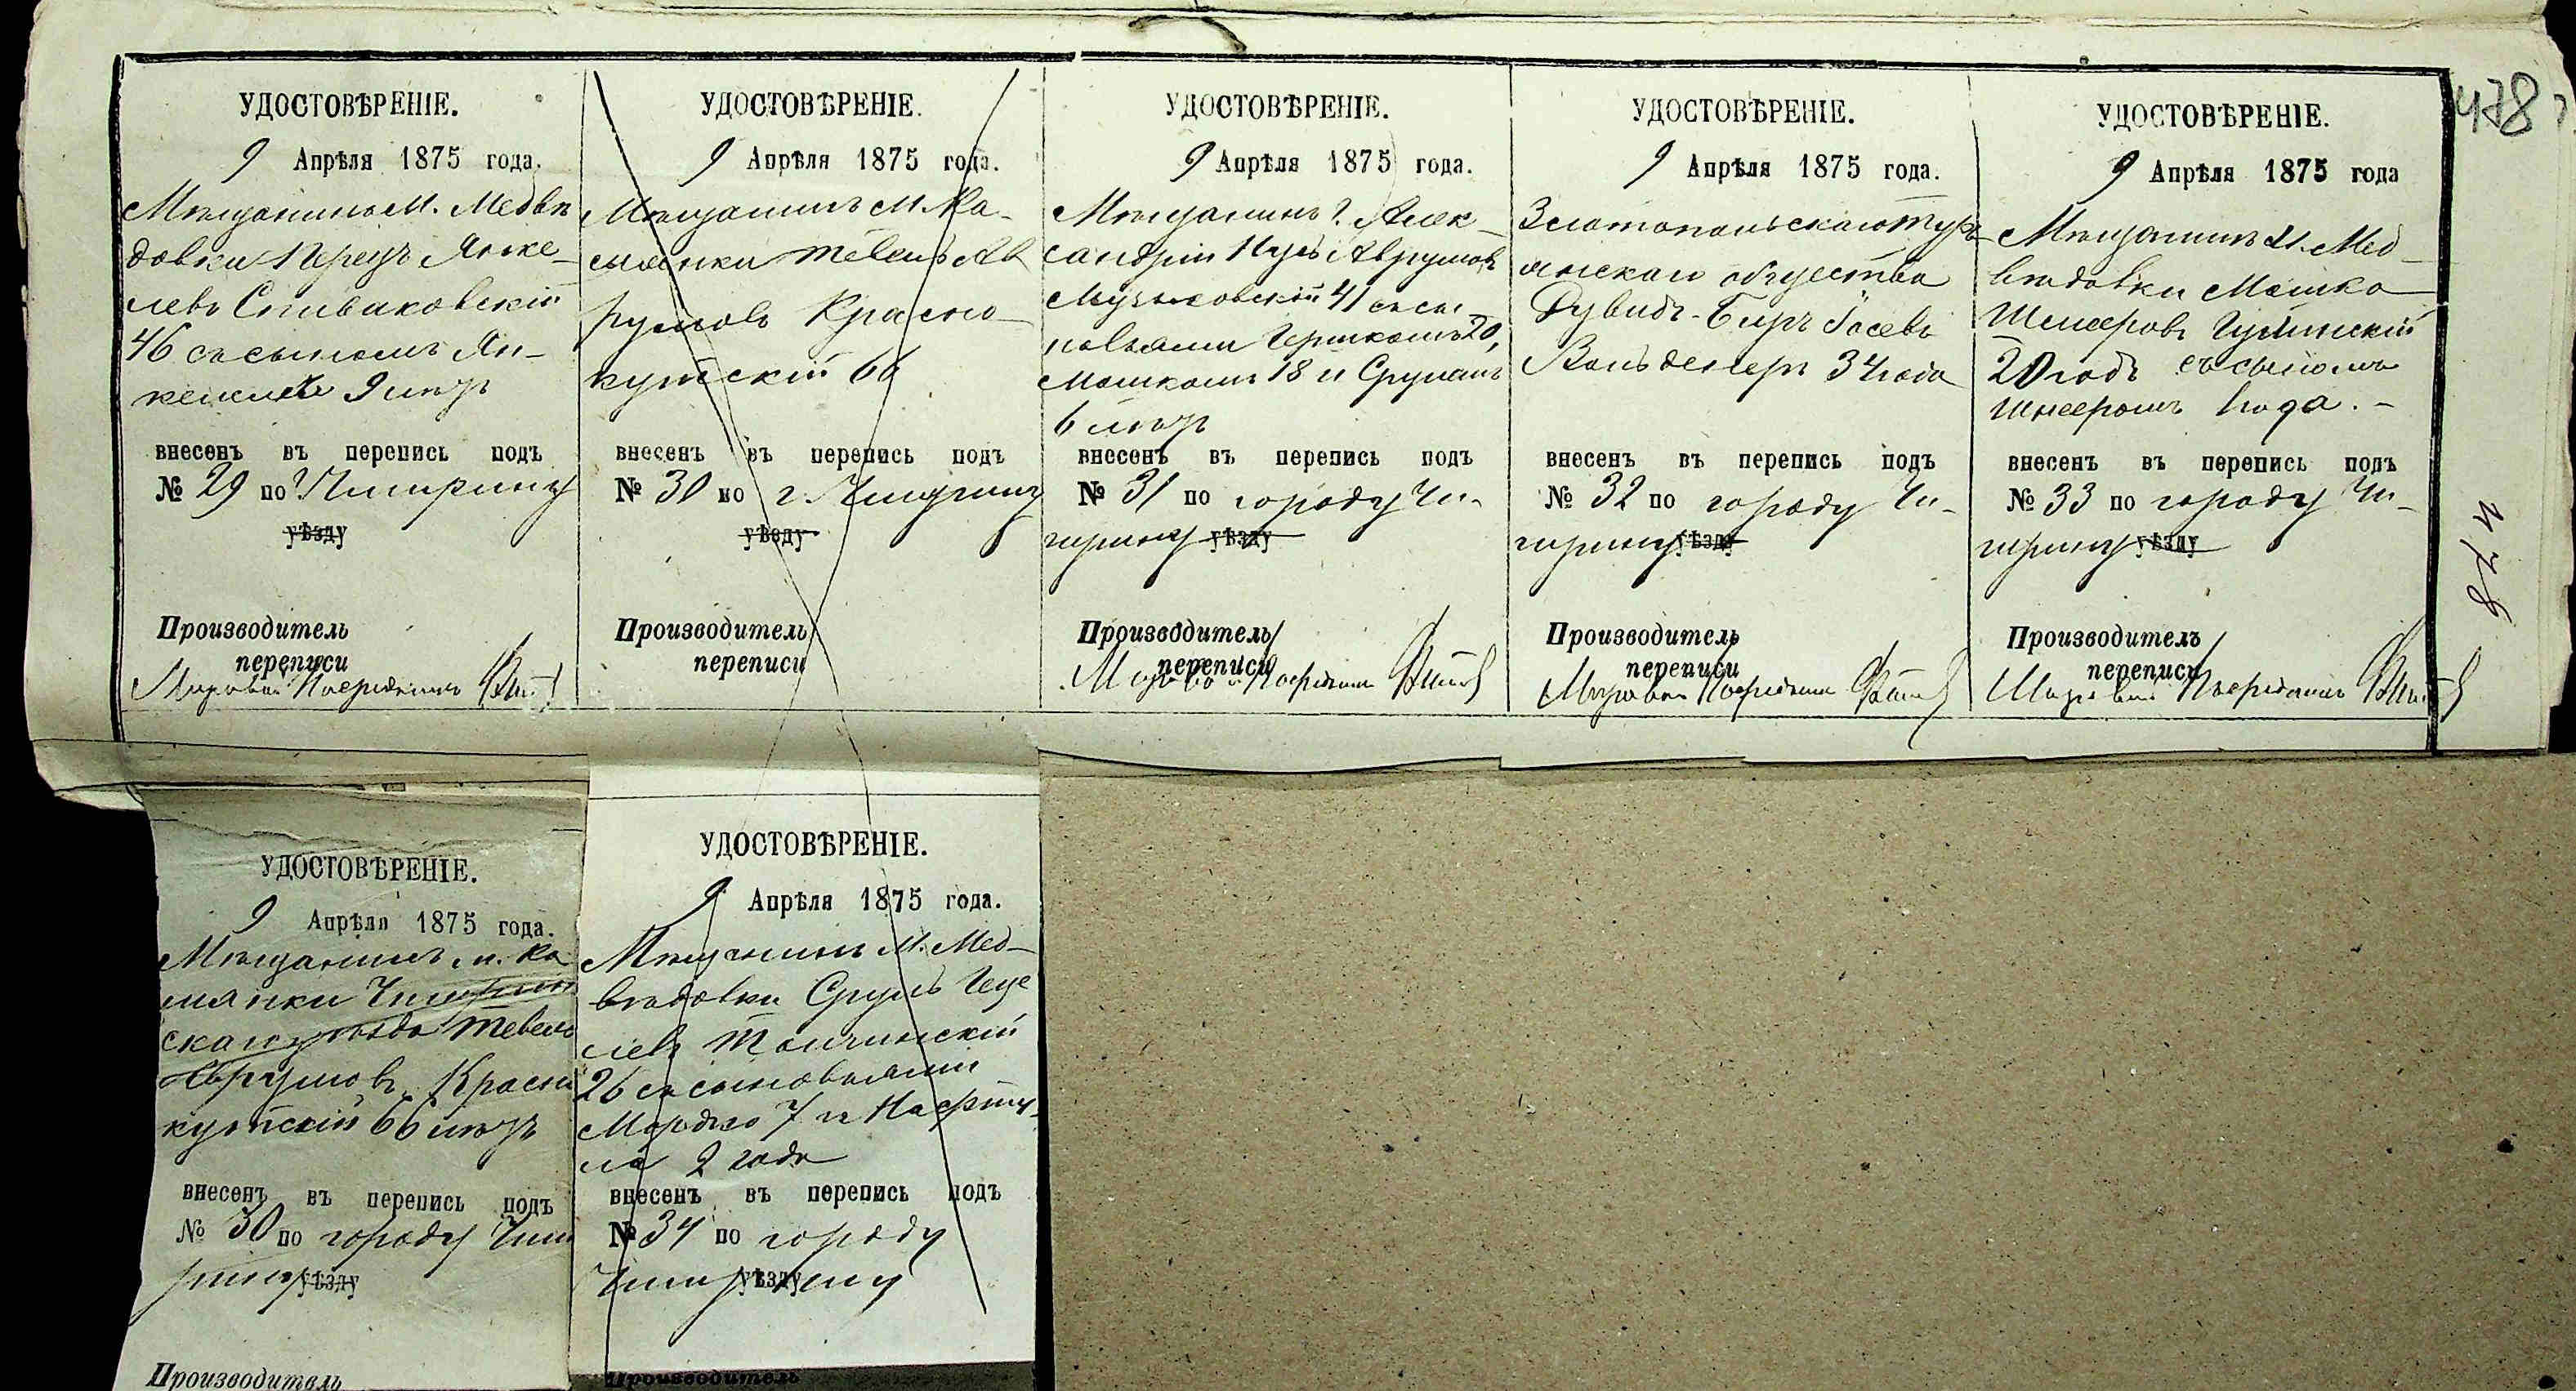 478
УДОСТОВѢРЕНІЕ.
9 Апрѣля 1875 года.
Мѣщанинъ М. Медвѣ
довки Перецъ Янке-
левъ Спиваковскій
46 съ сыномъ Ян-
келемъ 9 лѣтъ
внесенъ въ перепись подъ
№ 29 по Чигирину
уѣзду
Производитель
переписи
Мировой Посредникъ
УДОСТОВѢРЕНІЕ.
9 Апрѣля 1875 года.
Мѣщанинъ М. Ка-
мянки Тевель Ав
румовъ Красно-
кутскій 66
внесенъ въ перепись подъ
№ 30 по г. Чигирину
уѣзду
Производитель
переписи
УДОСТОВѢРЕНІЕ.
9 Апрѣля 1875 года.
Мѣщанинъ г. Алек-
сандріи Аврумовъ
41 съ сы-
новьями Гершкомъ 20,
Мошкомъ 18 и Срулемъ
6 лѣтъ
внесенъ въ перепись подъ
№ 31 по городу Чи-
гирину уѣзду
Производитель
переписи
Мировой Посредникъ
УДОСТОВѢРЕНІЕ.
9 Апрѣля 1875 года.
Златопольскаго
общества
Дувидъ-Беръ Іосевъ
34 года
внесенъ въ перепись подъ
№ 32 по городу Чи-
гирину уѣзду
Производитель
переписи
Мировой Посредникъ
УДОСТОВѢРЕНІЕ.
9 Апрѣля 1875 года
Мѣщанинъ М. Мед-
вѣдовки Мошко
Шнееровъ
20 годъ съ сыномъ
Шнееромъ 1 года. -
внесенъ въ перепись подъ
№ 33 по городу Чи-
гирину уѣзду
Производитель
переписи
Мировой Посредникъ
478
УДОСТОВѢРЕНІЕ.
9 Апрѣля 1875 года.
Мѣщанинъ м. Ка
мянки Чигирин
скаго уѣзда Тевель
Аврумовъ Красно
кутскій 66 лѣтъ
внесенъ въ перепись подъ
№ 30 по городу Чиги
рину уѣзду
Производитель
УДОСТОВѢРЕНІЕ.
9 Апрѣля 1875 года.
Мѣщанинъ М. Мед-
вѣдовки Сруль Геце
левъ Толчинскій
26 съ сыновьями
Мордко 7 и Нафту-
ла 2 года
внесенъ въ перепись подъ
№ 34 по городу
Чигирину уѣзду
Производитель